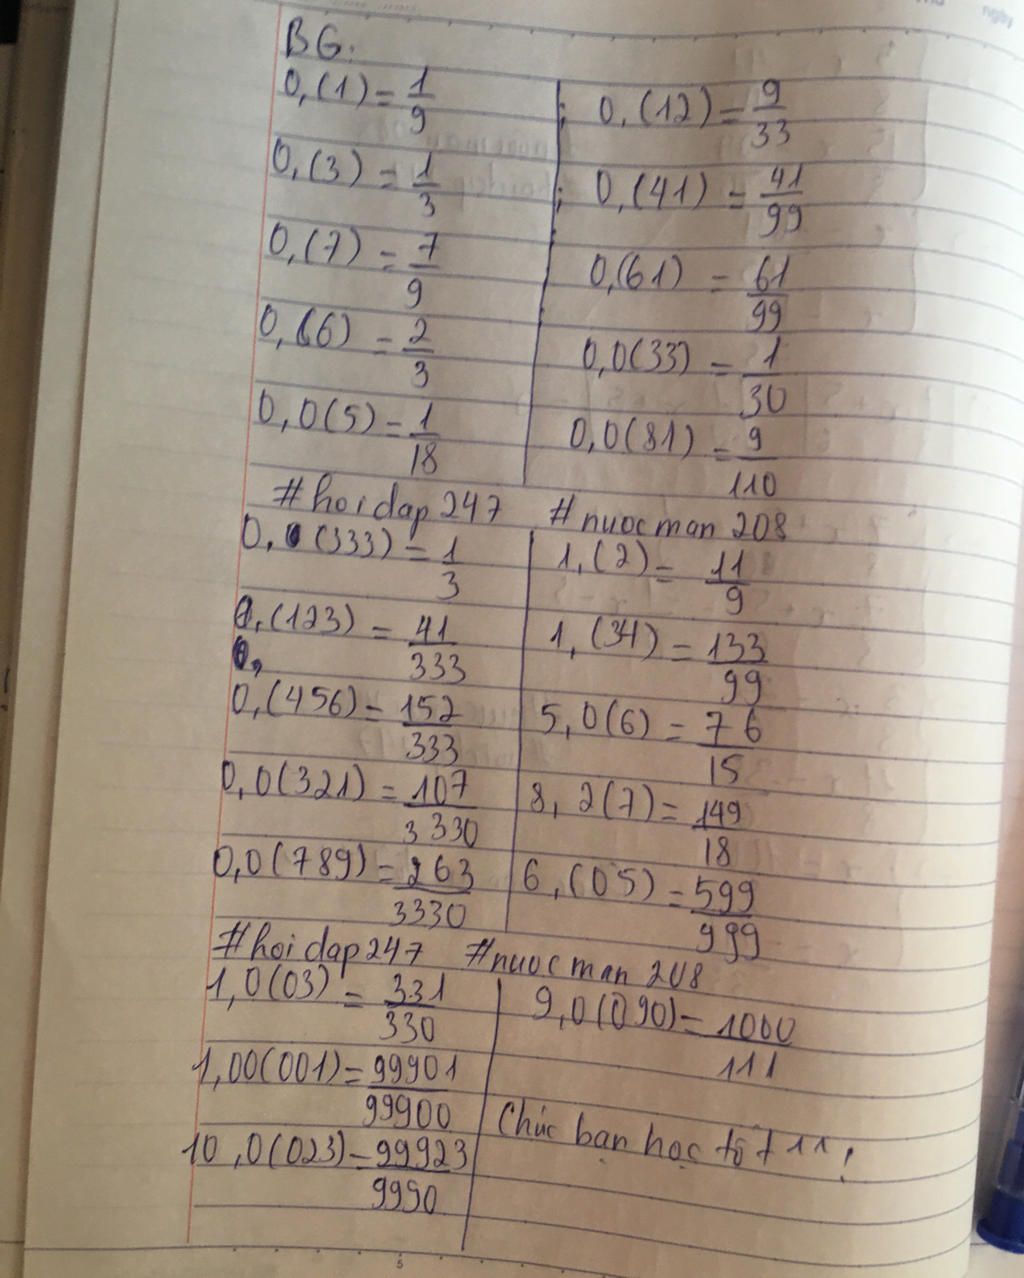 BG:
0,(1) = 1/9 ; 0,(12) = 9/33
0,(3) = 1/3 ; 0,(41) = 41/99
0,(7) = 7/9 0,(61) = 61/99
0,(6) = 2/3 0,0(33) = 1/30
0,0(5) = 1/18 0,0(81) = 9/110
#hoidap247 #nuocman208
0,(333) = 1/3 1,(2) = 11/9
0,(123) = 41/333 1,(34) = 133/99
0,
0,(456) = 152/333 5,0(6) = 76/15
0,0(321) = 107/3330 8,2(7) = 149/18
0,0(789) = 263/3330 6,(05) = 599/999
#hoidap247 #nuocman208
1,0(03) = 331/330 9,0(090) = 1000/111
1,00(001) = 99901/99900
Chúc bạn học tốt ^^!
10,0(023) = 99923/9990
5